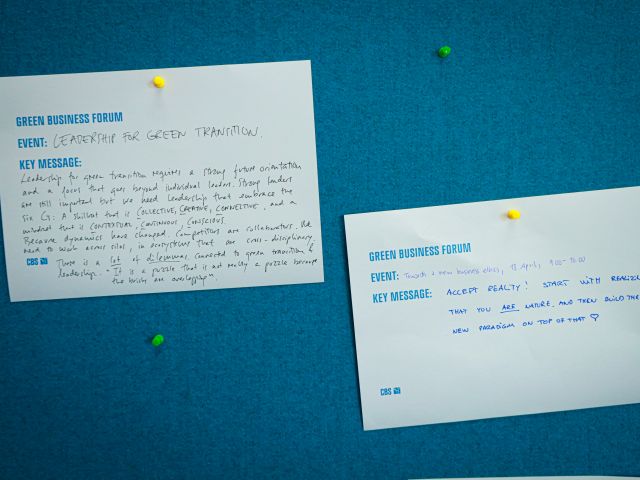 GREEN BUSINESS FORUM
EVENT: LEADERSHIP FOR GREEN TRANSITION.
KEY MESSAGE:
Leadership for green transition requires a strong future orientation
and a focus that goes beyond individual leaders. Strong leaders
are still important but we need leadership that embrace the
six C: A skillset that is COLLECTIVE, CREATIVE, CONNECTIVE, and a
mindset that is CONTEXTUAL, CONTINUOUS, CONSCIOUS.
Because dynamics have changed. Competitors are collaborators. We
need to work across silos, in ecosystems that are cross-disciplinary.
CBS There is a lot of dilemmas connected to green transition &
leadership. "It is a puzzle that is not really a puzzle because
the bricks are overlapping"
GREEN BUSINESS FORUM
EVENT: Towards a new business ethics, 18 April, 9:00-10:00
KEY MESSAGE: ACCEPT REALITY! START WITH REALIZI
THAT YOU ARE NATURE, AND THEN BUILD THE
NEW PARADIGM ON TOP OF THAT ♡
CBS